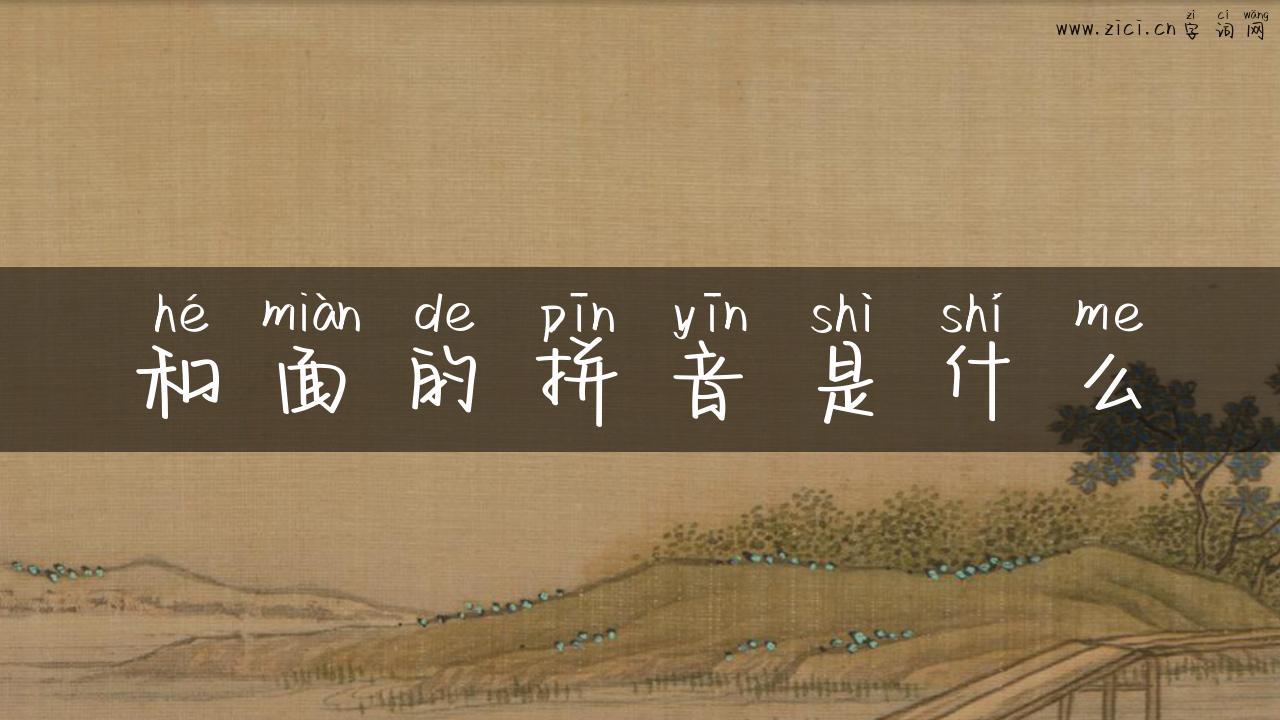 zì cí wǎng
www.zici.cn 字词网
hé miàn de pīn yīn shì shí me
和面的拼音是什么